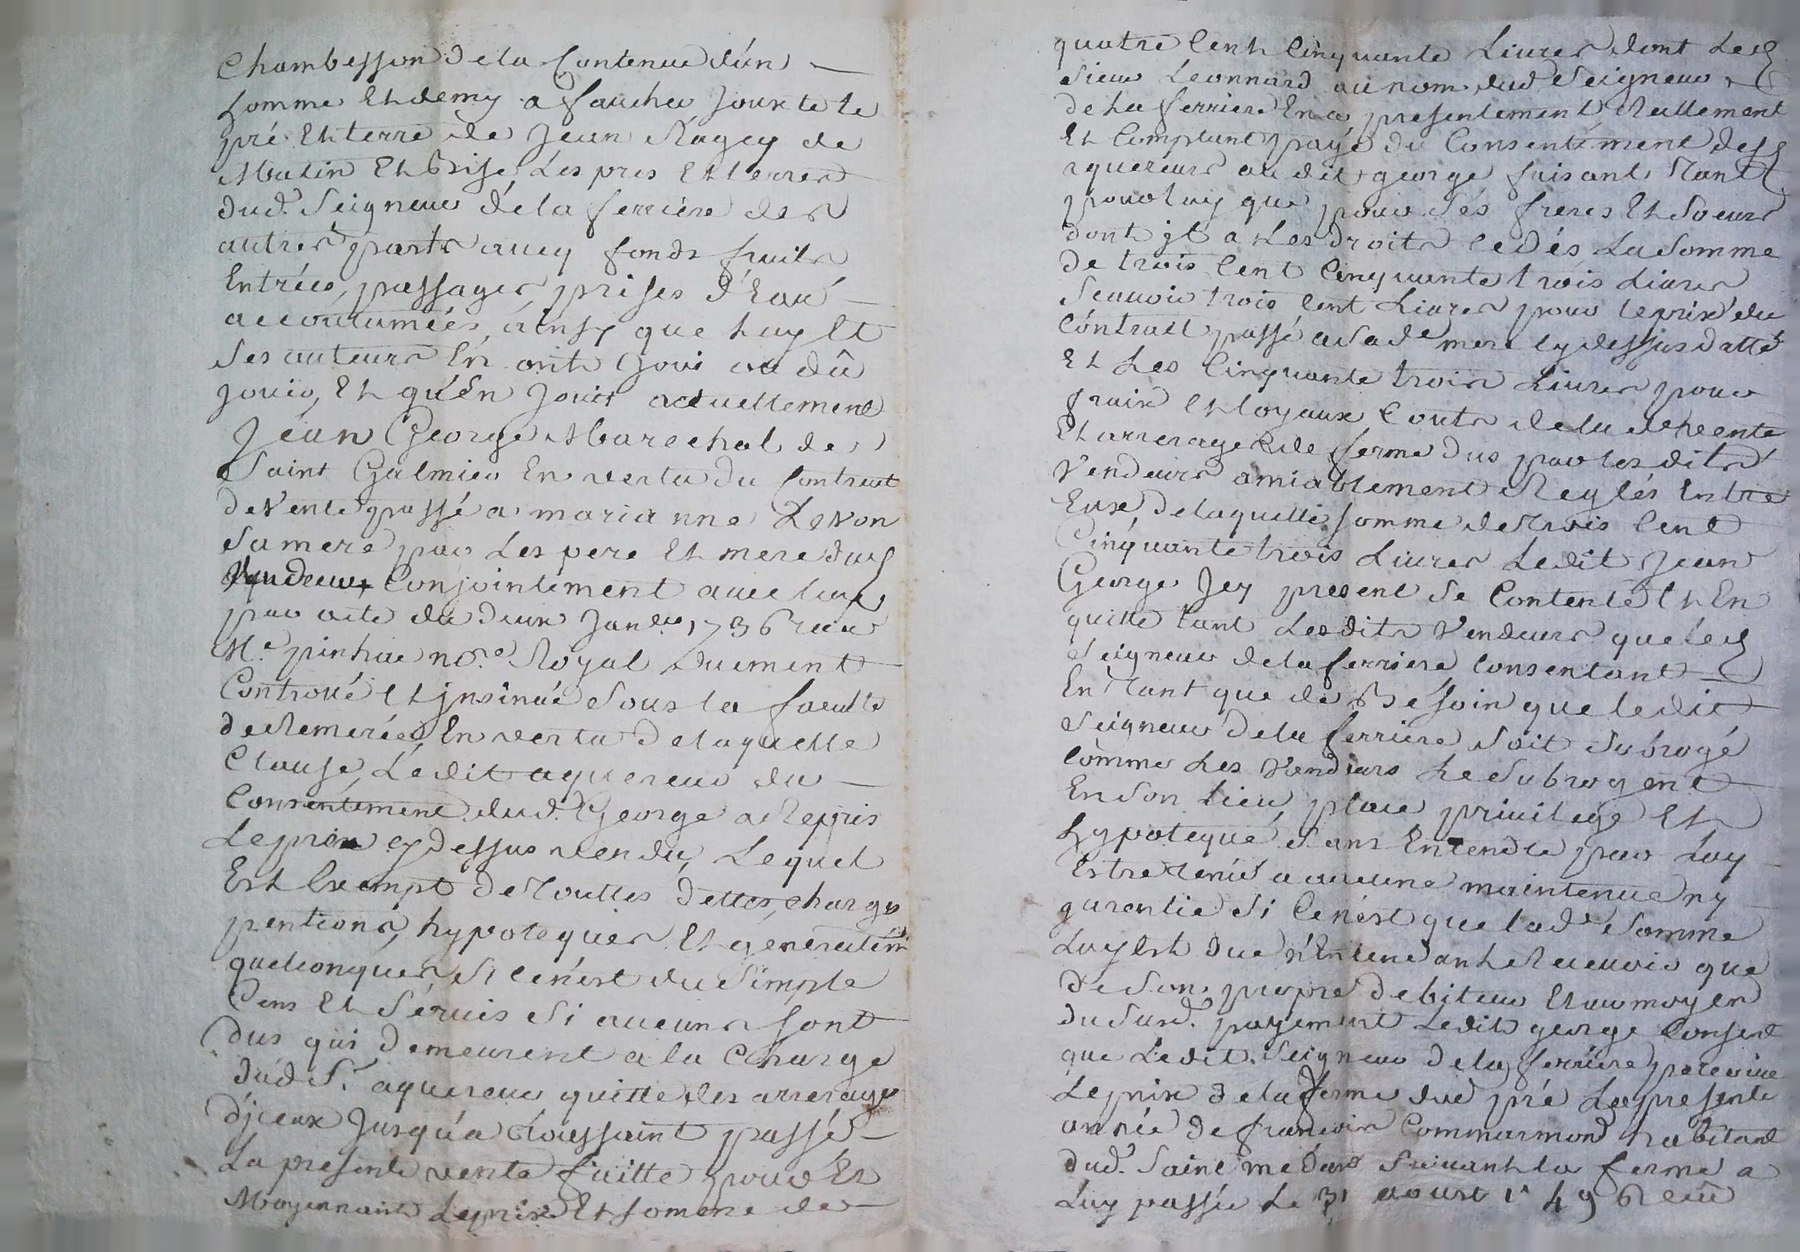 Chambesson de la Contenue d'un
homme Et demy a faucher Jouxte le
pré Et terre de Jean Ragey de
Matin Et Bise, Les pres Et terres
dud. Seigneur de la ferriere des
autres parts avec fonds fruits
Entrées, passages, prises d'Eau
accoutumées, ainsy que luy Et
Ses auteurs En ont Joui ou dû
Jouir, Et qu'En Jouit actuellement
Jean George Marechal de
Saint Galmier En vertu du Contract
de Vente passé a marianne
Sa mere par Les pere Et mere dud
Vendeur Conjointement avec luy
par acte du deux Janvier 1736 reçu
Me. pinhac no.re Royal duement
Controllé Et jnsinué Sous la faculté
de Remeré, En vertu de laquelle
Clause, Ledit aquereur du
Consentement dud. George a Repris
Le pré cy dessus vendu, Lequel
Est Exempt de Touttes dettes, charges
pentions, hypoteques Et generalem.
quelconques Si cen'est du Simple
Cens Et Servis Si aucuns sont
dus qui demeurent a la Charge
dud. Sr. aquereur quitte des arrerages
d'jceux Jusqu'a toussaint passé
La presente vente faitte pour Et
Moyennant Le prix Et somme de
quatre Cent Cinquante Livres dont Led
Sieur Leonnard au nom dud. Seigneur
de La ferriere En a presentement Reellement
Et Comptant payé du Consentement desd
aquereurs au dit george faisant Tant
pour luy que pour Sés freres Et Soeurs
dont jl a Les droits cedés La Somme
de trois Cent Cinquante trois Livres
Scavoir trois Cent Livres pour le prix du
Contract passé a Sad.e mere cy dessus datté
Et Les Cinquante trois Livres pour
fraix Et loyaux Couts de la de vente
Et arrerages de ferme dus par les dits
Vendeurs amiablement Reglés Entre
Eux de laquelle somme de Trois Cent
Cinquante trois Livres Ledit Jean
George Jcy present Se Contente Et En
quitte tant Lesdits Vendeurs que led
Seigneur de la ferriere Consentant
En Tant que de Besoin que ledit
Seigneur de la ferriere Soit Subrogé
Comme Les Vendeurs Le Subrogent
En Son Lieu, place privilege Et
hypoteque, Sans Entendre par Luy
Estre tenu a aucune maintenue ny
garentie Si Cen'est que lad.e Somme
Luy Est due n'Entendant Recevoir que
de Son propre debiteur Et au moyen
du Susd. payement Ledit george Consent
que Ledit Seigneur de la ferriere percoive
Le prix de la ferme dud pré La presente
année de francois Commarmond habitant
dud. Saint medard Suivant la ferme a
Luy passée Le 31 aoust 1749 Recû